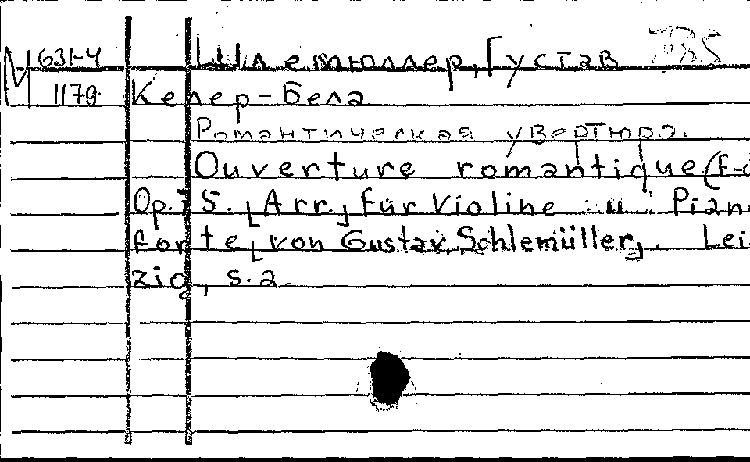 М 631-4 Шлемюллер, Густав 785
1179 Келер-Бела
Романтическая увертюра.
Ouverture romantique (F-d
Op. 75. [Arr.] für Violine u. Pian
forte [von Gustav Schlemüller]. Lei
zig, s. a.